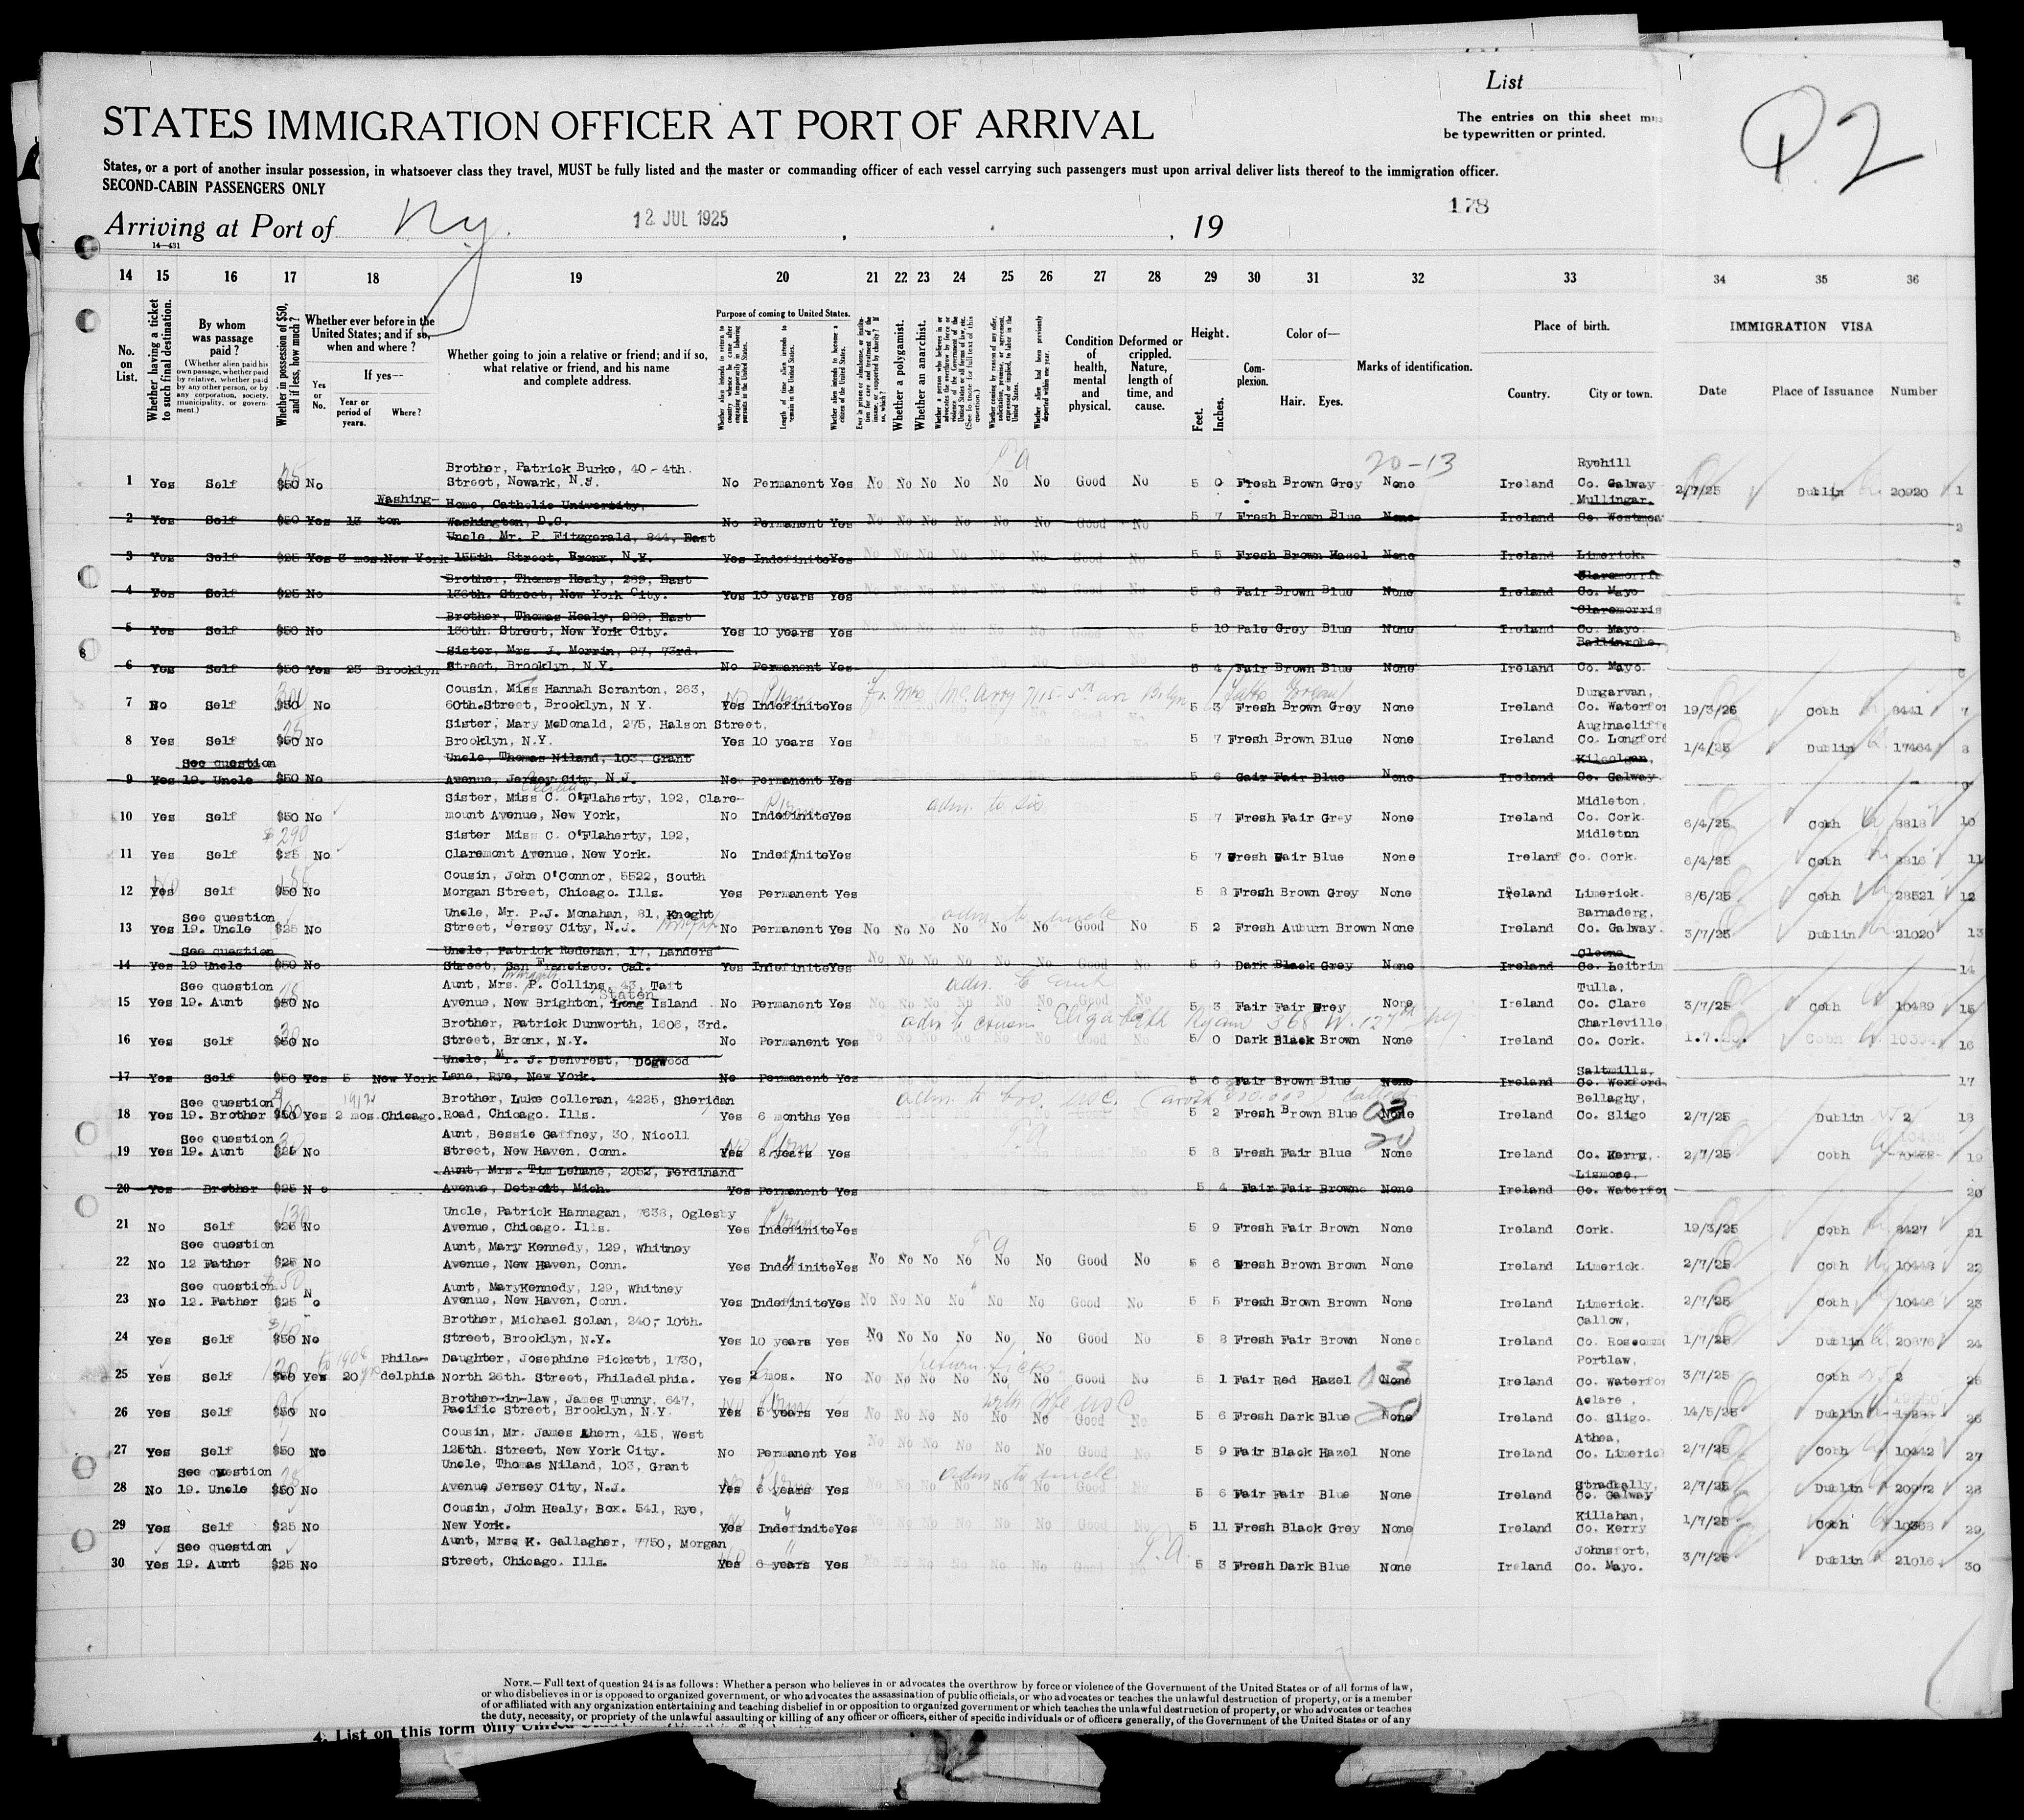 List
STATES IMMIGRATION OFFICER AT PORT OF ARRIVAL
The entries on this sheet
be typewritten or printed.
P2
States, or a port of another insular possession, in whatsoever class they travel, MUST be fully listed and the master or commanding officer of each vessel carrying such passengers must upon arrival deliver lists thereof to the immigration officer.
SECOND-CABIN PASSENGERS ONLY
Arriving at Port of Ny. 12 JUL 1925 , 19 178
14—431
14 15 16 17 18 19 20 21 22 23 24 25 26 27 28 29 30 31 32 33 34 35 36
No. on List.
Whether having a ticket to such final destination.
By whom was passage paid?
(Whether alien paid his own passage, whether paid by relative, whether paid by any other person, or by any corporation, society, municipality, or government.)
Whether in possession of $50, and if less, how much?
Whether ever before in the United States; and if so, when and where?
Yes or No.
If yes—
Year or period of years.
Where?
Whether going to join a relative or friend; and if so, what relative or friend, and his name and complete address.
Purpose of coming to United States.
Length of time alien intends to remain in the United States.
Whether alien intends to become a citizen of the United States.
Whether a polygamist.
Whether an anarchist.
Condition of health, mental and physical.
Deformed or crippled. Nature, length of time, and cause.
Height.
Feet. Inches.
Complexion.
Color of—
Hair. Eyes.
Marks of identification.
Place of birth.
Country. City or town.
IMMIGRATION VISA
Date Place of Issuance Number
20-13
Brother, Patrick Burke, 40-4th. Ryehill
1 Yes Self $50 No Street, Newark, N.J. No Permanent Yes No No No No No No Good No 5 0 Fresh Brown Grey None Ireland Co. Galway 2/7/25 Dublin 20920 1
Washing- Home, Catholic University, Mullingar.
2 Yes Self $50 Yes 13 ton Washington, D.C. No Permanent Yes No No No No No No Good No 5 7 Fresh Brown Blue None Ireland Co. Westmea 2
Uncle, Mr. P. Fitzgerald, 844, East
3 Yes Self $25 Yes 3 mos. New York 155th. Street, Bronx, N.Y. Yes Indefinite Yes No No No No No No Good No 5 5 Fresh Brown Hazel None Ireland Limerick. 3
Brother, Thomas Healy, 289, East Claremorris
4 Yes Self $25 No 136th. Street, New York City. Yes 10 years Yes 5 8 Fair Brown Blue None Ireland Co. Mayo 4
Brother, Thomas Healy, 289, East Claremorris
5 Yes Self $50 No 136th. Street, New York City. Yes 10 years Yes 5 10 Pale Grey Blue None Ireland Co. Mayo. 5
Sister, Mrs. J. Morrin, 97, 73rd. Ballinrobe,
6 Yes Self $50 Yes 23 Brooklyn Street, Brooklyn, N.Y. No Permanent Yes 5 4 Fair Brown Blue None Ireland Co. Mayo. 6
Cousin, Miss Hannah Scranton, 263, Dungarvan,
7 No Self $50 No 60th. Street, Brooklyn, N Y. Yes Indefinite Yes 5 3 Fresh Brown Grey None Ireland Co. Waterfor 19/3/25 Cobh 8441 7
Sister, Mary McDonald, 275, Halson Street, Aughnacliffe
8 Yes Self $50 No Brooklyn, N.Y. Yes 10 years Yes 5 7 Fresh Brown Blue None Ireland Co. Longford 1/4/25 Dublin 17464 8
See question Uncle, Thomas Niland, 103, Grant Kilcolgan,
9 Yes 19. Uncle $50 No Avenue, Jersey City, N J. No Permanent Yes 5 6 Gair Fair Blue None Ireland Co. Galway 9
Sister, Miss C. O'Flaherty, 192, Clare- adm. to sis Midleton,
10 Yes Self $50 No mount Avenue, New York, No Indefinite Yes 5 7 Fresh Fair Grey None Ireland Co. Cork 6/4/25 Cobh 8818 10
$290 Sister Miss C. O'Flaherty, 192, Midleton
11 Yes Self $25 No Claremont Avenue, New York. No Indefinite Yes 5 7 Fresh Fair Blue None Ireland Co. Cork. 6/4/25 Cobh 8816 11
Cousin, John O'Connor, 5522, South
12 Yes Self $50 No Morgan Street, Chicago. Ills. Yes Permanent Yes 5 8 Fresh Brown Grey None Ireland Limerick. 8/6/25 Cobh 28521 12
See question Uncle, Mr. P.J. Monahan, 81, Knoght adm. to uncle Barnaderg,
13 Yes 19. Uncle $25 No Street, Jersey City, N.J. No Permanent Yes No No No No No No Good No 5 2 Fresh Auburn Brown None Ireland Co. Galway. 3/7/25 Dublin 21020 13
See question Uncle, Patrick Redehan, 17, Landers Cloone,
14 Yes 19 Uncle $50 No Street, San Francisco. Cal. Yes Indefinite Yes No No No No No No Good No 5 8 Dark Black Grey None Ireland Co. Leitrim 14
See question Aunt, Mrs. P. Collins, 43, Taft adm. to aunt Tulla,
15 Yes 19. Aunt $50 No Avenue, New Brighton, Long Staten Island No Permanent Yes 5 3 Fair Fair Grey None Ireland Co. Clare 3/7/25 Cobh 10489 15
Brother, Patrick Dunworth, 1606, 3rd. adm to cousin Elizabeth Ryan 368 W. 127th Charleville
16 Yes Self $50 No Street, Bronx, N.Y. No Permanent Yes 5 0 Dark Black Brown None Ireland Co. Cork. 1.7.25. Cobh 16
Uncle, Mr. J. Denvrest, Dogwood Saltmills,
17 Yes Self $50 Yes 5 New York Lane, Rye, New York. No Permanent Yes 5 6 Fair Brown Blue None Ireland Co. Wexford, 17
See question Brother, Luke Colleran, 4225, Sheridan Bellaghy,
18 Yes 19. Brother $50 Yes 2 mos. Chicago. Road, Chicago. Ills. Yes 6 months Yes 5 2 Fresh Brown Blue None Ireland Co. Sligo 2/7/25 Dublin 2 18
See question Aunt, Bessie Gaffney, 30, Nicoll
19 Yes 19. Aunt $25 No Street, New Haven. Conn. Yes 8 years Yes 5 8 Fresh Fair Blue None Ireland Co. Kerry. 2/7/25 Cobh 19
Aunt, Mrs. Tim Lehane, 2052, Ferdinand Lismore,
20 Yes Brother $25 No Avenue, Detroit, Mich. Yes Permanent Yes 5 4 Fair Fair Browne None Ireland Co. Waterfor 20
Uncle, Patrick Hannagan, 7638, Oglesby
21 No Self $25 No Avenue, Chicago. Ills. Yes Indefinite Yes 5 9 Fresh Fair Brown None Ireland Cork. 19/3/25 Cobh 8427 21
See question Aunt, Mary Kennedy, 129, Whitney
22 No 12 Father $25 No Avenue, New Haven, Conn. Yes Indefinite Yes No No No No No No Good No 5 6 Fresh Brown Brown None Ireland Limerick. 2/7/25 Cobh 10448 22
See question Aunt, MaryKennedy, 129, Whitney
23 No 12. Father $25 No Avenue, New Haven, Conn. Yes Indefinite Yes No No No No No No Good No 5 5 Fresh Brown Brown None Ireland Limerick. 2/7/25 Cobh 10446 23
Brother, Michael Solan, 240, 10th. Callow,
24 Yes Self $50 No Street, Brooklyn, N.Y. Yes 10 years Yes No No No No No No Good No 5 8 Fresh Fair Brown None Ireland Co. Roscommo 1/7/25 Dublin 20876 24
Phila- Daughter, Josephine Pickett, 1730, Portlaw,
25 Yes Self $50 Yes 20 delphia North 26th. Street, Philadelphia. Yes 2 mos. No No No No No No No Good No 5 1 Fair Red Hazel None Ireland Co. Waterfor 3/7/25 Cobh 2 25
Brother-in-law, James Tunny, 647, Aclare,
26 Yes Self $50 No Pacific Street, Brooklyn, N.Y. Yes 5 years Yes No No No No No No Good No 5 6 Fresh Dark Blue None Ireland Co. Sligo. 14/5/25 Dublin 26
Cousin, Mr. James Ahern, 415, West Athea,
27 Yes Self $50 No 125th. Street, New York City. No Permanent Yes No No No No No No Good No 5 9 Fair Black Hazel None Ireland Co. Limeric 2/7/25 Cobh 10442 27
See question Uncle, Thomas Niland, 103, Grant adm. to uncle Stradbally,
28 No 19. Uncle $50 No Avenue Jersey City, N.J. Yes 6 years Yes 5 6 Fair Fair Blue None Ireland Co. Galway 2/7/25 Dublin 20972 28
Cousin, John Healy, Box. 541, Rye, Killahan,
29 Yes Self $25 No New York. Yes Indefinite Yes 5 11 Fresh Black Grey None Ireland Co. Kerry 1/7/25 Cobh 10368 29
See question Aunt, Mrs. K. Gallagher, 7750, Morgan Johnsfort,
30 Yes 19. Aunt $25 No Street, Chicago. Ills. Yes 6 years Yes 5 3 Fresh Dark Blue None Ireland Co. Mayo. 3/7/25 Dublin 21016 30
NOTE.—Full text of question 24 is as follows: Whether a person who believes in or advocates the overthrow by force or violence of the Government of the United States or of all forms of law,
or who disbelieves in or is opposed to organized government, or who advocates the assassination of public officials, or who advocates or teaches the unlawful destruction of property, or is a member
of or affiliated with any organization entertaining and teaching disbelief in or opposition to organized government or which teaches the unlawful destruction of property, or who advocates or teaches
the duty, necessity, or propriety of the unlawful assaulting or killing of any officer or officers, either of specific individuals or of officers generally, of the Government of the United States or of any
4. List on this form only